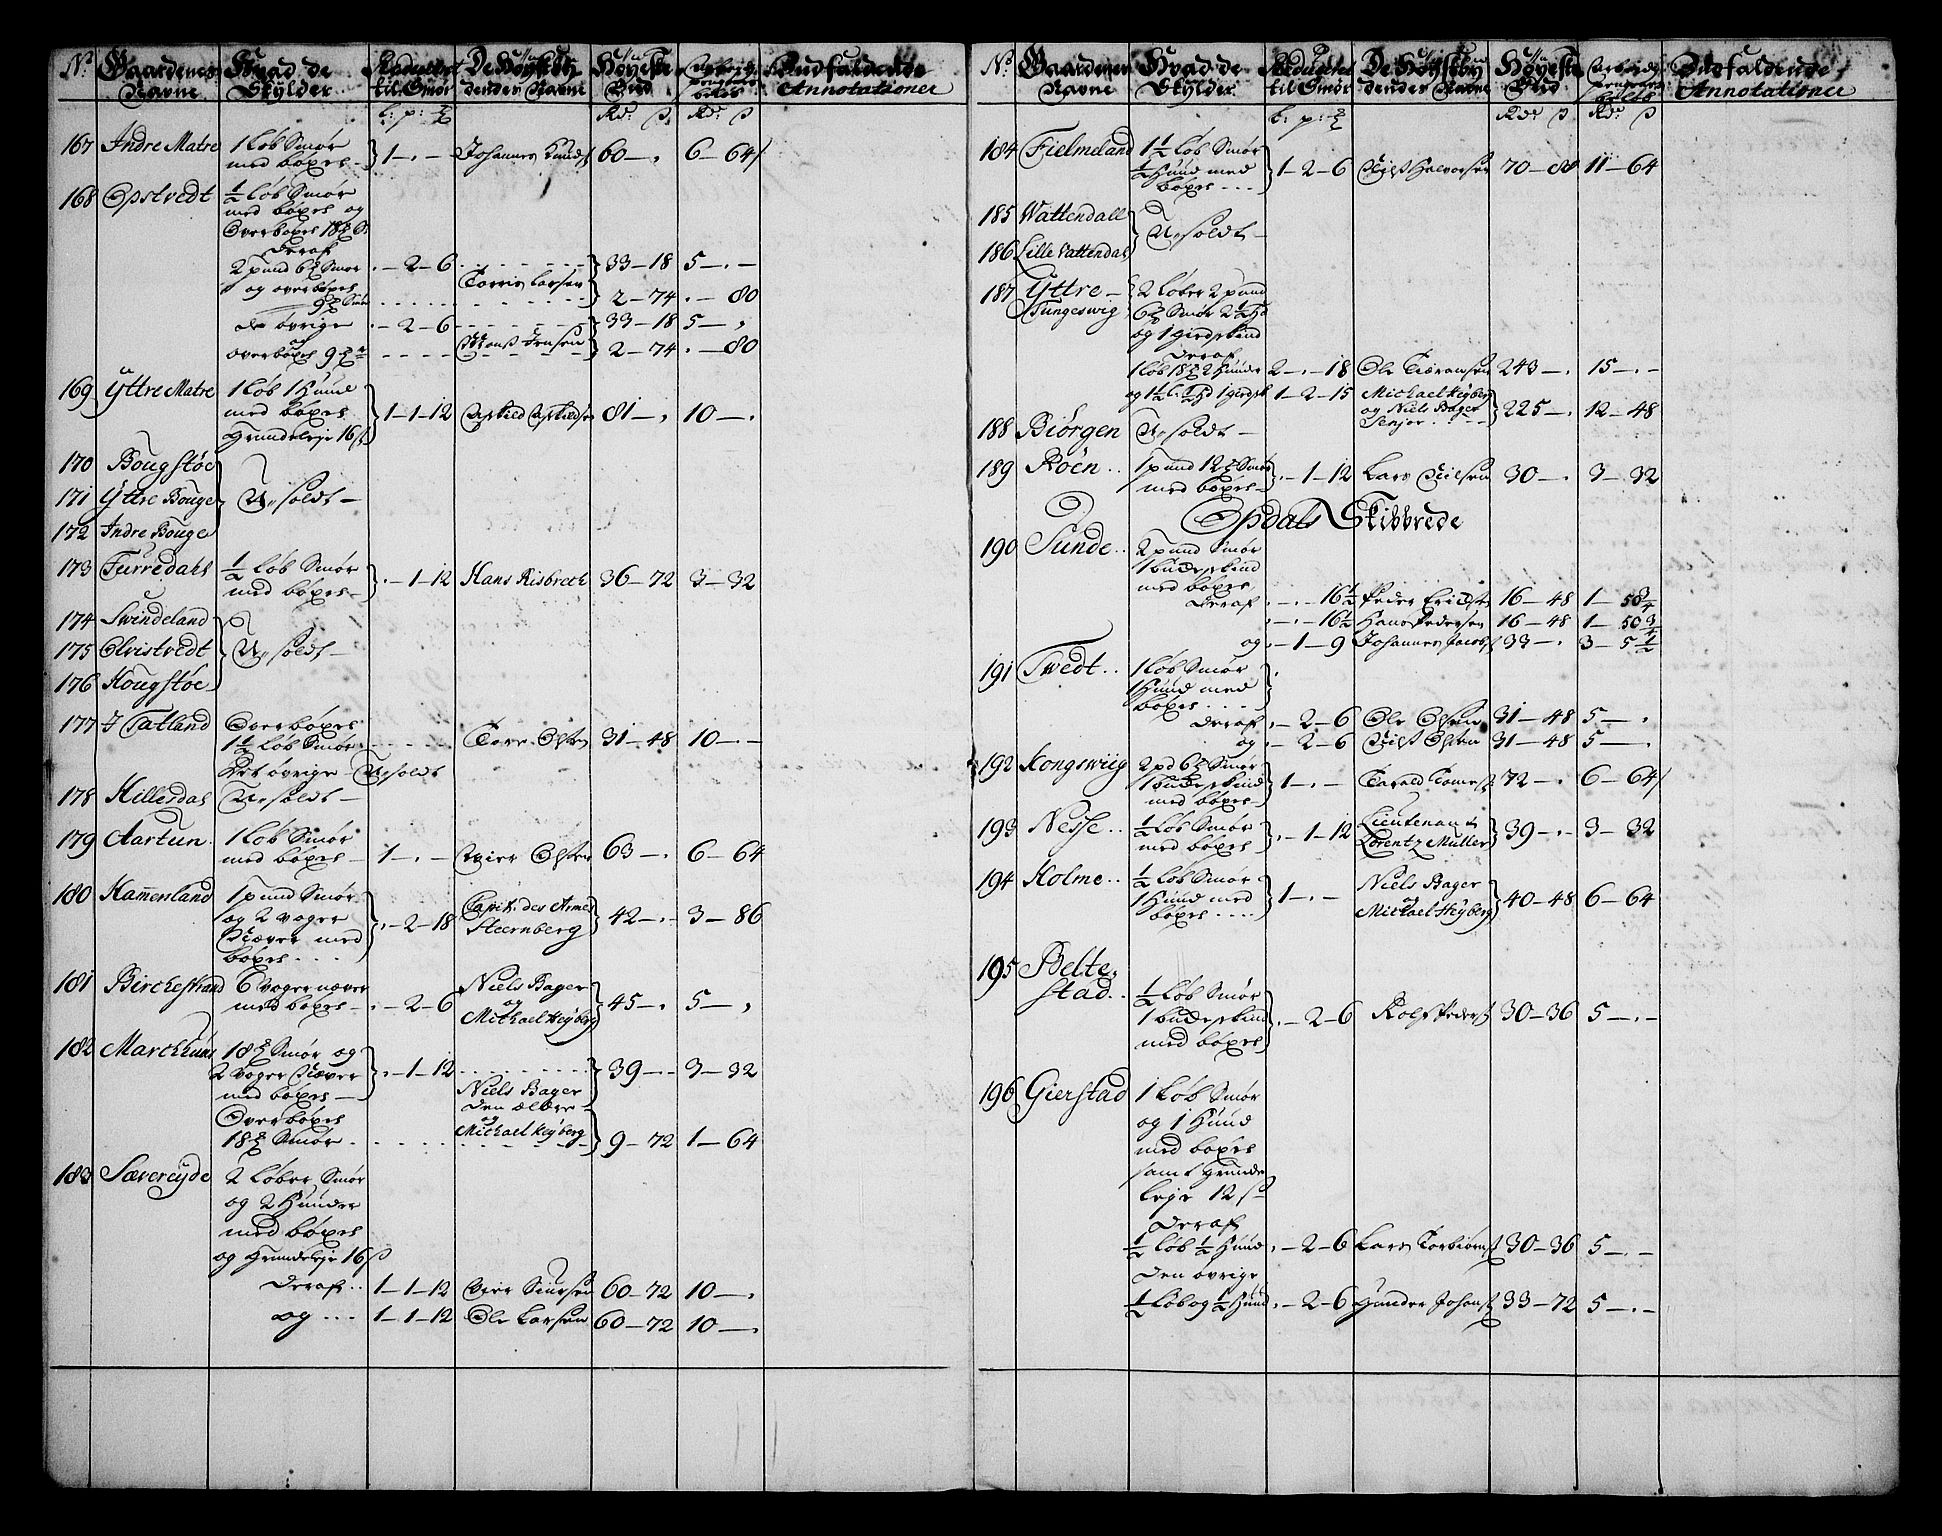 No. Gaardenes Navne | Hvad de Skylder | Reduceret til Smør | De Høystbydendes Navne | Høyeste Bud | | Indfaldende Annotationer
l: p: | Rd. ß | Rd. ß
167 Indre Matre 1 løb Smør
med bøxel 1 - . - Johannes Knuds 60 - . 6 - 64
168 Opstvedt ½ løb Smør
med bøxel og
Overbøxel 18
Deraf
2 pund 6 Smør . - 2 - 6 33 - 18 5 - . -
og overbøxel Torris Larsen
9 Smør 2 - 74 . - 80
de øvrige . - 2 - 6 33 - 18 5 - .
og Jensen
overbøxel 9 2 - 74 . - 80
169 Yttre Matre 1 løb 1 Huud
med bøxel 1 - 1 - 12 81 - . 10 - .
Grundeleje 16 ß
170 Bougstøe
171 Yttre Bouge Usoldt -
172 Indre Bouge
173 Furredahl ½ løb Smør
med bøxel . - 1 - 12 Hans Risbrech 36 - 72 3 - 32
174 Swindeland
175 Elvistvedt Usoldt -
176 Hougstøe
177 Tatland Overbøxel
1½ løb Smør Tore Olsen 31 - 48 10 - . -
Det øvrige Usoldt
178 Hillesdal Usoldt -
179 Aartun 1 løb Smør
med bøxel 1 - . - Olsen 63 - . 6 - 64
180 Hammerland 1 pund Smør
og 2 voger . - 2 - 18 Capit. des Armes Steernberg 42 - . - 3 - 86
Næver med
bøxel
181 Birchestrand 6 voger næver
med bøxel . - 2 - 6 Niels Bager og Michael Heyberg 45 - . 5 - .
182 Marchhuus 18 Smør og
2 voger Næver . - 1 - 12 39 - . - 3 - 32
med bøxel Niels Bager
Overbøxel den ældre og
18 Smør Michael Heyberg 9 - 72 1 - 64
183 Sævereyde 2 løber Smør
og 2 Huuder
med bøxel
og Grundeleje 16 ß
Deraf 1 - 1 - 12 Siursen 60 - 72 10 - .
og 1 - 1 - 12 Ole Larsen 60 - 72 10 - .
No. Gaardenes Navne | Hvad de Skylder | Reduceret til Smør | De Høystbydendes Navne | Høyeste Bud | | Indfaldende Annotationer
l: p: | Rd. ß | Rd. ß
184 Fielmeland 1½ løb Smør
½ Huud med 1 - 2 - 6 Niels Halvorsen 70 - 80 11 - 64
bøxel
185 Wattendall
Usoldt -
186 Lille Vattendal
187 Yttre - 2 løber 2 pund
Tungeswig 6 Smør 2½ H
og 1 giedeskind
Deraf
1 løb 18 2 Huuder 2 - . - 18 Ole 243 - . 15 - . -
1 - 2 - 15 Michael Heyberg og Niels Bager Senjor 225 - . 12 - 48
188 Biørgen Usoldt -
189 Røen 1 pund 12 Smør
med bøxel . - 1 - 12 Lars Nilsen 30 - . 3 - 32
Opdals Skibbrede
190 Sunde 2 pund Smør
1 budeskind
med bøxel
Deraf . - . - 16½ Peder Erichsen 16 - 48 1 - 50¾
. - . - 16½ Hans Pedersen 16 - 48 1 - 50¾
og . - 1 - 9 Johannes Jacobs 33 - . 3 - 5½
191 Twedt 1 løb Smør
1 Huud med
bøxel
Deraf . - 2 - 6 Ole Olsen 31 - 48 5 - .
og . - 2 - 6 Niels Olsen 31 - 48 5 - .
192 Kongswiig 2 pd 6 Smør
1 budeskind 1 - . - 72 - . 6 - 64
med bøxel
193 Nesse ½ løb Smør
med bøxel . - 1 - 12 Lieutenant Lorentz Müller 39 - . - 3 - 32
194 Holme ½ løb Smør
1 Huud med 1 - . - Niels Bager og Michael Heyberg 40 - 48 6 - 64
bøxel
195 Beltestad ½ løb Smør
1 budeskind . - 2 - 6 Rolf Peders 30 - 36 5 - . -
med bøxel
196 Gierstad 1 løb Smør
og 1 Huud
med bøxel
samt Grunde
leje 12 ß
Deraf
½ løb ½ Huud . - 2 - 6 Lars Torbiørns 30 - 36 5 - . -
Den øvrige
½ løb og ½ Huud . - 2 - 6 Gunder Johans 33 - 72 5 - . -